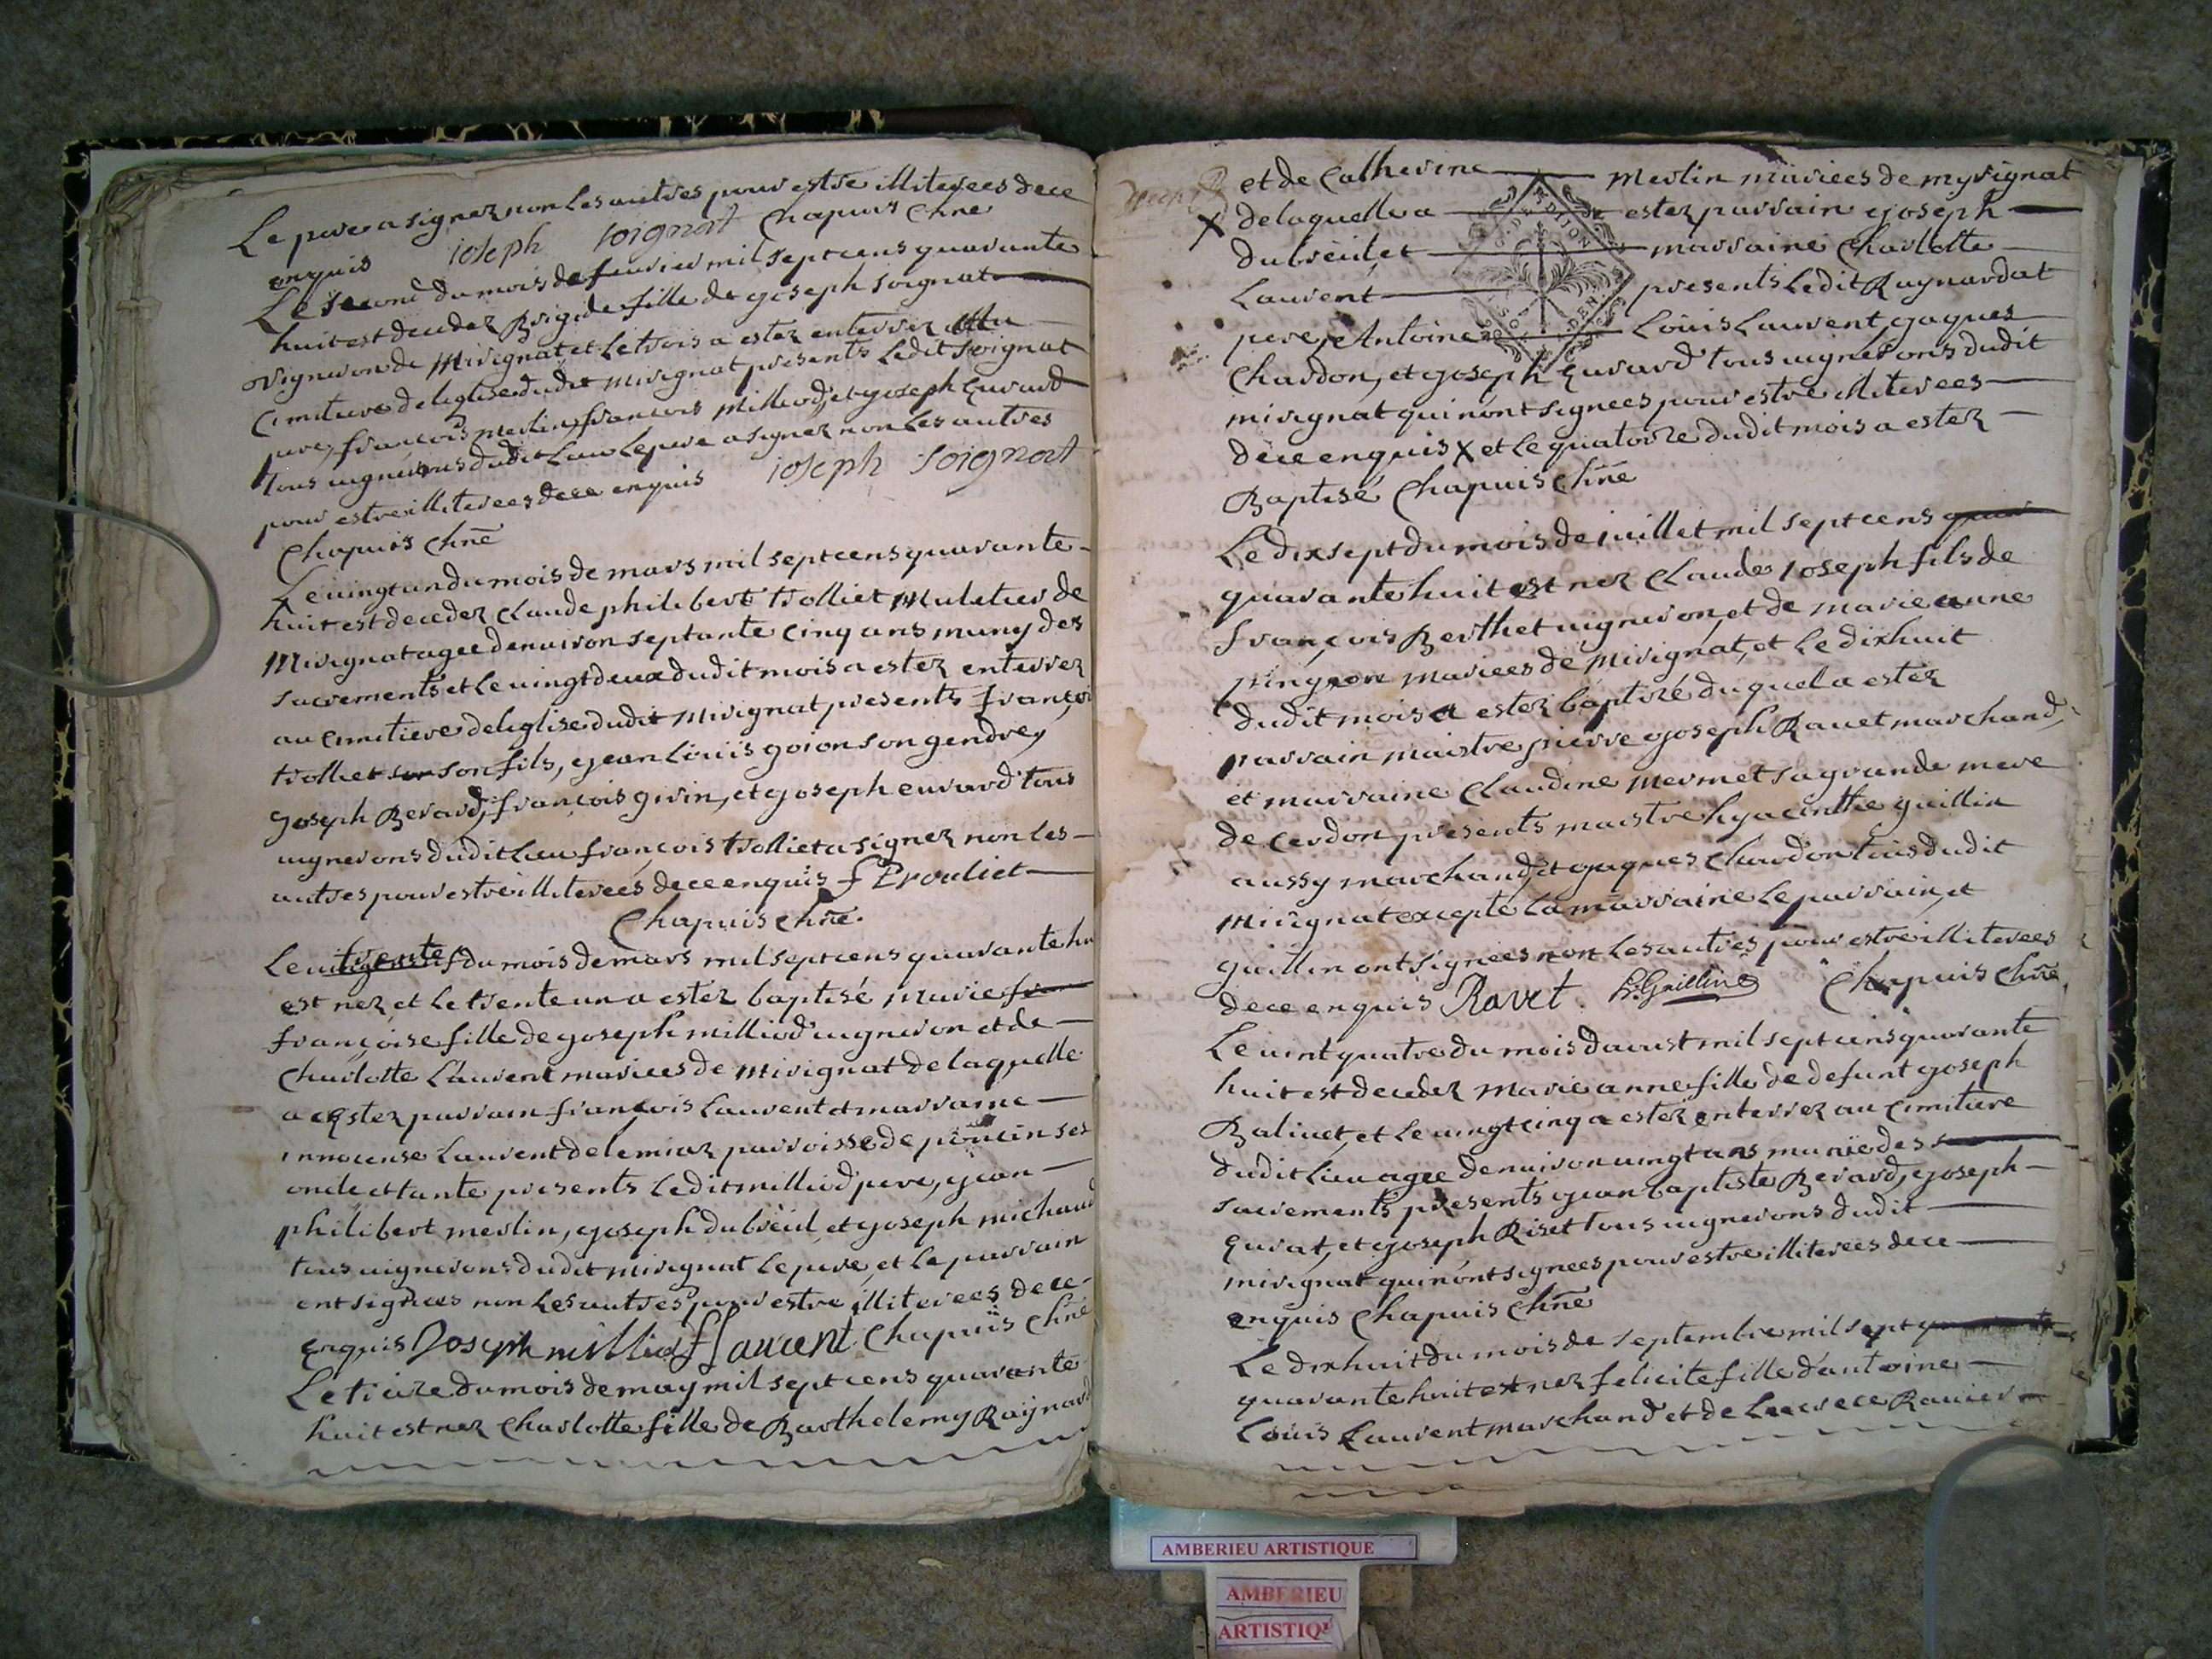 Le pere a signez non les autres pour estre illiterees de ce
enquis joseph soignat Chapuis Chne
Le second du mois de feuvier mil sept cens quarante
huit est decedez Brigide fille de joseph soignat
vigneron de Mirignat et le trois a estez enterrez au
Cimitiere de leglise dudit mirignat presents ledit soignat
pere, françois merlin, françois milliod, et joseph Euvard
tous uignerons dudit Lieu le pere a signez non les autres
pour estre illiterees de ce enquis joseph soignat
Chapuis Chne
Le uingt un du mois de mars mil sept cens quarante
huit est decedez Claude philibert trolliet Muletier de
Mirignat agee denuiron septante cinq ans muny des
sacrements et le uingt deux dudit mois a estez enterrez
au cimitiere de leglise dudit Mirignat presents françois
trolliet son fils, jean Louis goion son gendre,
joseph Berard, françois girin, et joseph euvard tous
uignerons dudit Lieu françois trolliet a signez non les
autres pour estre illiterees de ce enquis f Trouliet
Chapuis Chne.
Le trente du mois de mars mil sept cens quarante hu
est nez et le trente un a estez baptisé Marie
françoise fille de joseph milliod uigneron et de
Charlotte Laurent mariees de Mirignat de laquelle
a estez parrain françois Laurent et marraine
innocense Laurent de lemiaz parroisse de poncin ses
oncle et tante presents ledit milliod pere, jean
philibert merlin, joseph dubreüil et joseph michaud
tous uignerons dudit mirignat le pere, et le parrain
ont signees non les autres pour estre illiterees de ce
enquis Joseph milliod f laurent Chapuis Chne
Le treize du mois de may mil sept cens quarante
huit est nez Charlotte fille de Barthelemy Raynard
et de Catherine Merlin mariees de myrignat
X de laquelle a estez parrain joseph
dubreüil et marraine Charlotte
Laurent presents ledit Raynard at
pere, Antoine Loüis Laurent, jaques
Chardon, et joseph Euvard tous uignerons dudit
mirignat qui n'ont signees pour estre illiterees
de ce enquis X et le quatorze dudit mois a estez
Baptisé Chapuis Chne
Le dix sept du mois de juillet mil sept cens
quarante huit est nez Claude joseph fils de
françois Berthet uigneron, et de marie anne
pingeon mariees de Mirignat, et le dix huit
dudit mois a estez baptizé duquel a estez
parrain maistre pierre joseph Ravet marchand,
et marraine Claudine Mermet sa grande mere
de Cerdon, presents maistre hyacinthe guillin
aussy marchand, et jaques Chardon tous dudit
Mirignat excepte la marraine le parrain, et
guillin ont signees non les autres pour estre illiterees
de ce enquis Ravet. h. Guillin Chapuis Chne
Le uint quatre du mois daoust mil sept cens quarante
huit est decedez Marie anne fille de defunt joseph
Balivet, et le uingt cinq a estez enterrez au Cimitiere
dudit Lieu agee denuiron uingt ans munie des
sacrements presents jean baptiste Berard, joseph
Euvat, et joseph Riset tous uignerons dudit
mirignat qui n'ont signees pour estre illiterees de ce
enquis Chapuis Chne
Le dix huit du mois de septembre mil sept
quarante huit est nez felicite fille d'antoine
Loüis Laurent marchand et de Lucrece Ravier
AMBERIEU ARTISTIQUE
AMBERIEU
ARTISTIQ